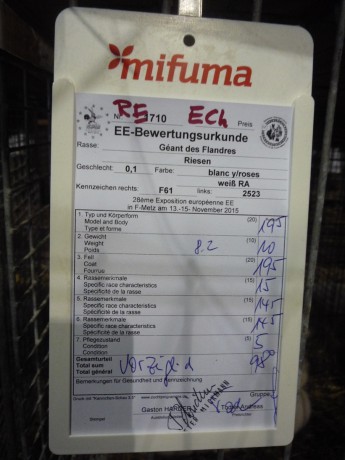 mifuma
RE ECh
Nr. 710 Preis
EE-Bewertungsurkunde
Rasse: Géant des Flandres
Riesen
Geschlecht: 0,1 Farbe: blanc y/roses
weiß RA
Kennzeichen rechts: F61 links: 2523
28ème Exposition européenne EE
in F-Metz am 13.-15- November 2015
1. Typ und Körperform (20) 195
Model and Body
Type et forme
2. Gewicht (10) 10
Weight 8.2
Poids
3. Fell (20) 195
Coat
Fourrue
4. Rassemerkmale (15) 15
Specific race characteristics
Spécificité de la rasse
5. Rassemerkmale (15) 145
Specific race characteristics
Spécificité de la rasse
6. Rassemerkmale (15) 145
Specific race characteristics
Spécificité de la rasse
7. Pflegezustand (5) 5
Condition
Condition
Gesamturteil 98
Total sum vorzüglich
Total général
Bemerkungen für Gesundheit und Kennzeichnung Gruppe
Gaston Andreas